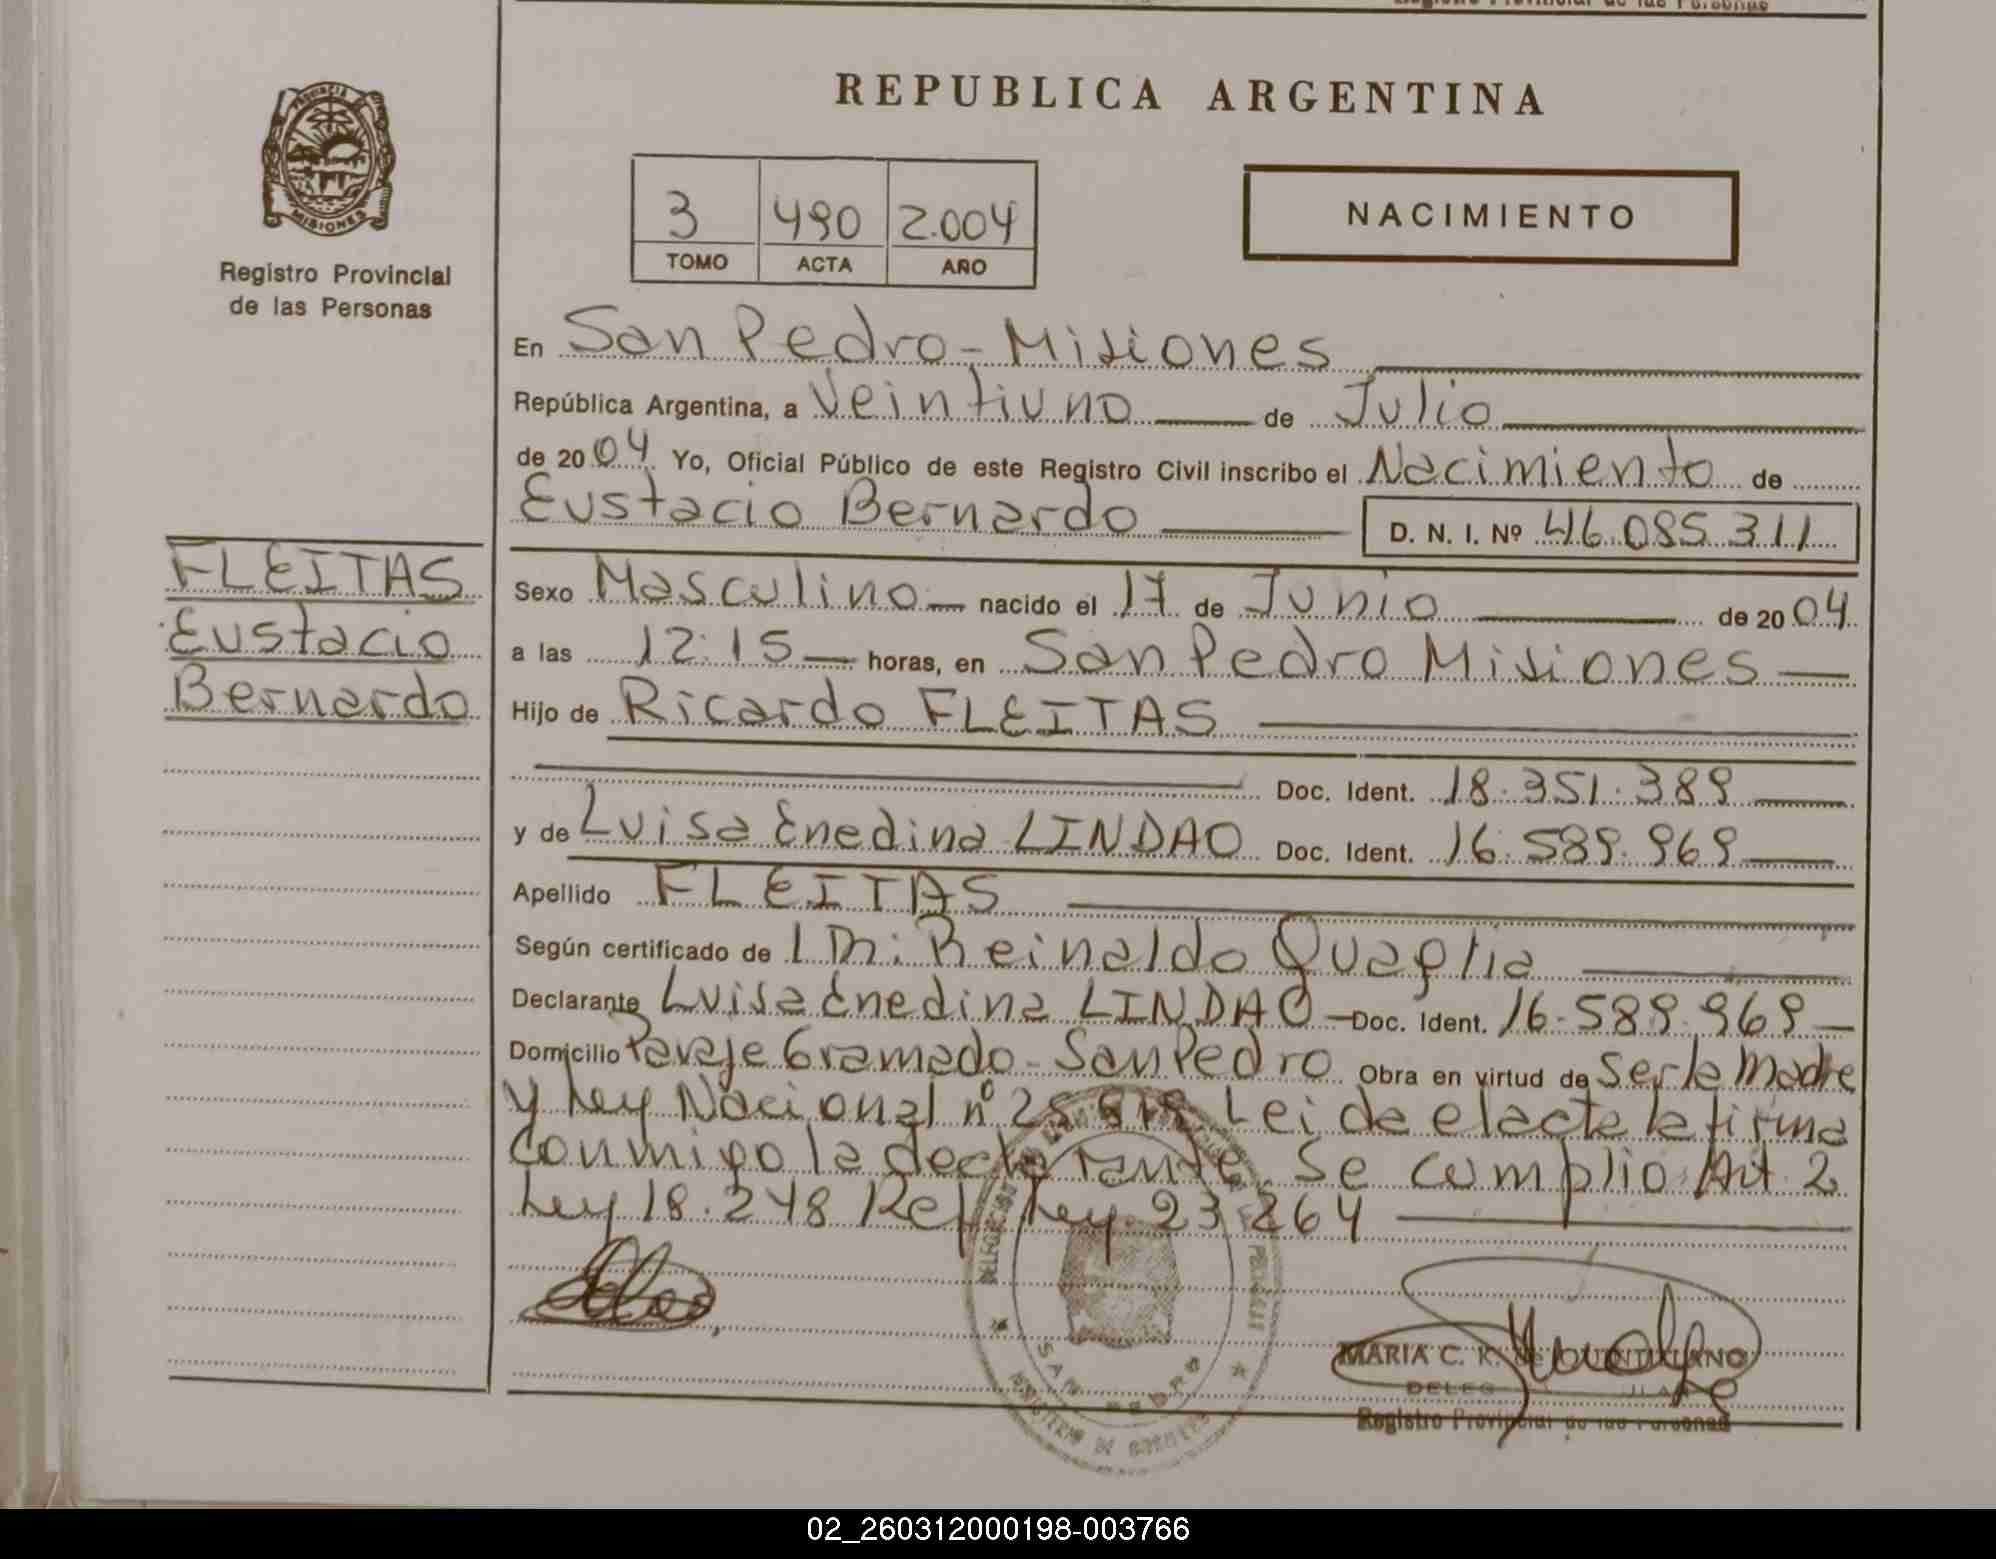 REPUBLICA ARGENTINA
PROVINCIA DE MISIONES
Registro Provincial
de las Personas
3 490 2.004
TOMO ACTA AÑO
NACIMIENTO
En San Pedro - Misiones
República Argentina, a Veintiuno de Julio
de 2004 Yo, Oficial Público de este Registro Civil inscribo el Nacimiento de
Eustacio Bernardo D. N. I. Nº 46.085.311
FLEITAS
Eustacio
Bernardo
Sexo Masculino nacido el 17 de Junio de 2004
a las 12:15 horas, en San Pedro Misiones
Hijo de Ricardo FLEITAS
Doc. Ident. 18.351.389
y de Luisa Enedina LINDAO Doc. Ident. 16.589.969
Apellido FLEITAS
Según certificado de Reinaldo Quaglia
Declarante Luisa Enedina LINDAO Doc. Ident. 16.589.969
Domicilio Paraje Gramado - San Pedro Obra en virtud de Ser la Madre
y Ley Nacional nº Leida el acta la firma
conmigo la declarante Se cumplio Art. 2
Ley 18.248 Ref. Ley. 23 264
SAN PEDRO
MINISTERIO DE GOBIERNO
MARIA C. K. de QUINTILIANO
Registro Provincial de las Personas
02_260312000198-003766